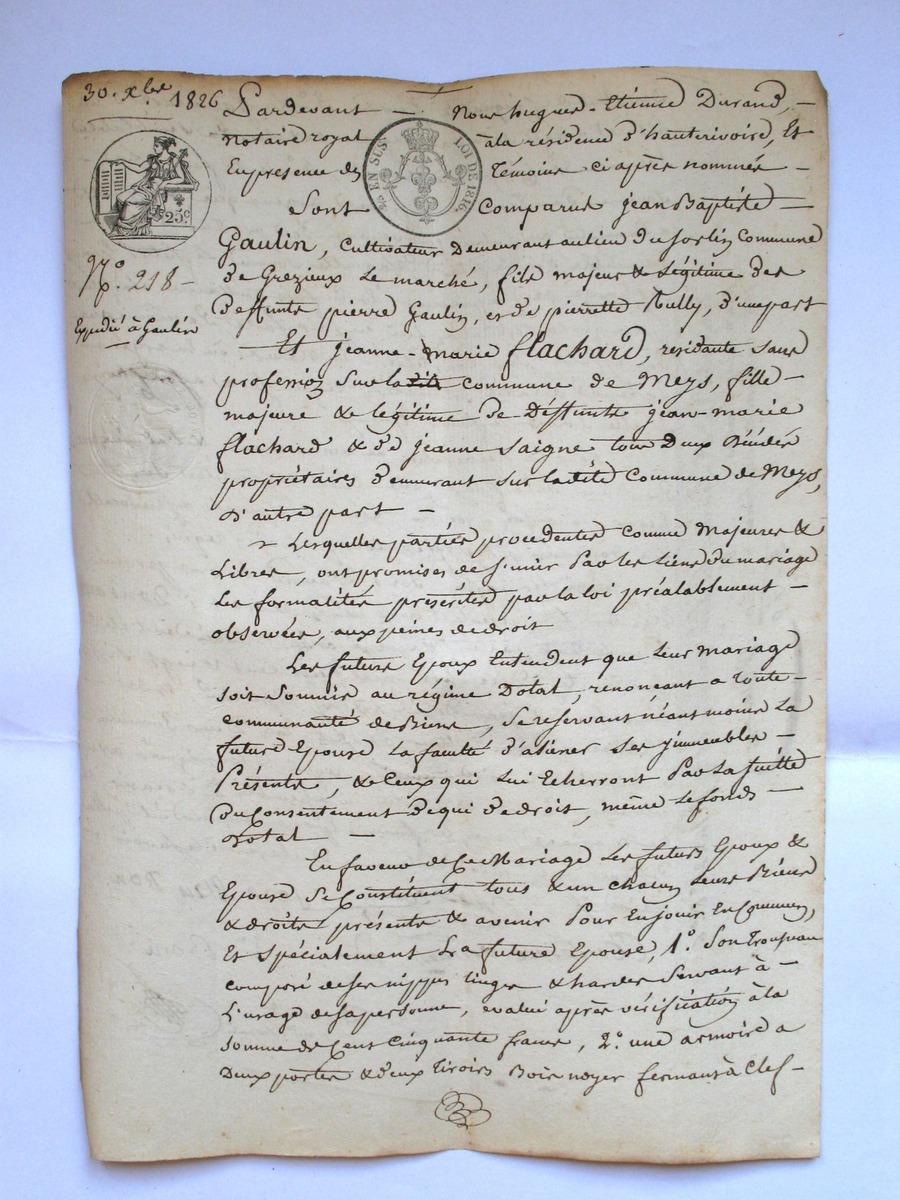 30. Xbre 1826
Pardevant — Nous hugues-Etienne Durand, —
notaire royal à la résidence d'hauterivoire, Et
En presence des Témoins ci après nommés —
Sont Comparus jean Baptiste —
EN SUS LOI DE 1816.
25c
Gaulin, cultivateur demeurant au lieu du Commune
de Grezieux Le marché, fils majeur & Légitime des
deffunts pierre Gaulin, et de pierrette Rully, d'une part
N.o 218 —
Expedié à Gaulin
Et jeanne-marie flachard, residante sans
profession sur la dite commune de Meys, fille —
majeure & légitime de deffunts jean-marie
flachard & de jeanne saigne tous deux
propriétaires demeurant sur la dite Commune de Meys,
d'autre part —
Lesquelles parties procedentes comme Majeures &
Libres, ont promises de s'unir Par les Liens du mariage
Les formalités préscrites par la loi préalablement —
observées, aux peines de droit
Les futurs Epoux Entendent que Leur Mariage
soit soumis au régime Dotal, renonçant a toute —
communauté de Biens, se reservant néantmoins La
future Epouse La faculté d'aliéner ses jmmeubles —
Présents, & Ceux qui Lui Echerront Par La suitte
du Consentement de qui de droit, même Le fonds —
Dotal —
En faveur de Ce Mariage Les futurs Epoux &
Epouse se Constituent tous & un chacun Leurs Biens
& droits présents & avenir Pour En jouir En Commun,
Et spécialement La future Epouse, 1.o Son Trousseau
composé de ses nippes linges & hardes servant à —
L'usage de sa personne, evalué après vérification à la
somme de Cent Cinquante francs, 2.o une armoire a
Deux portes & deux tiroirs Bois noyer fermant à Clef —